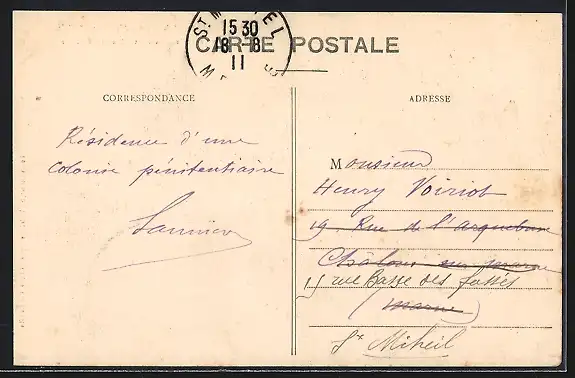 ST MIHIEL
15 30
18-8
11
CARTE POSTALE
CORRESPONDANCE
ADRESSE
Résidence d'une
colonie pénitentiaire
Monsieur
Henry Voiriot
19 Rue de l'arquebuse
Châlons sur marne
15 rue Basse des fossés
(marne)
St Mihiel